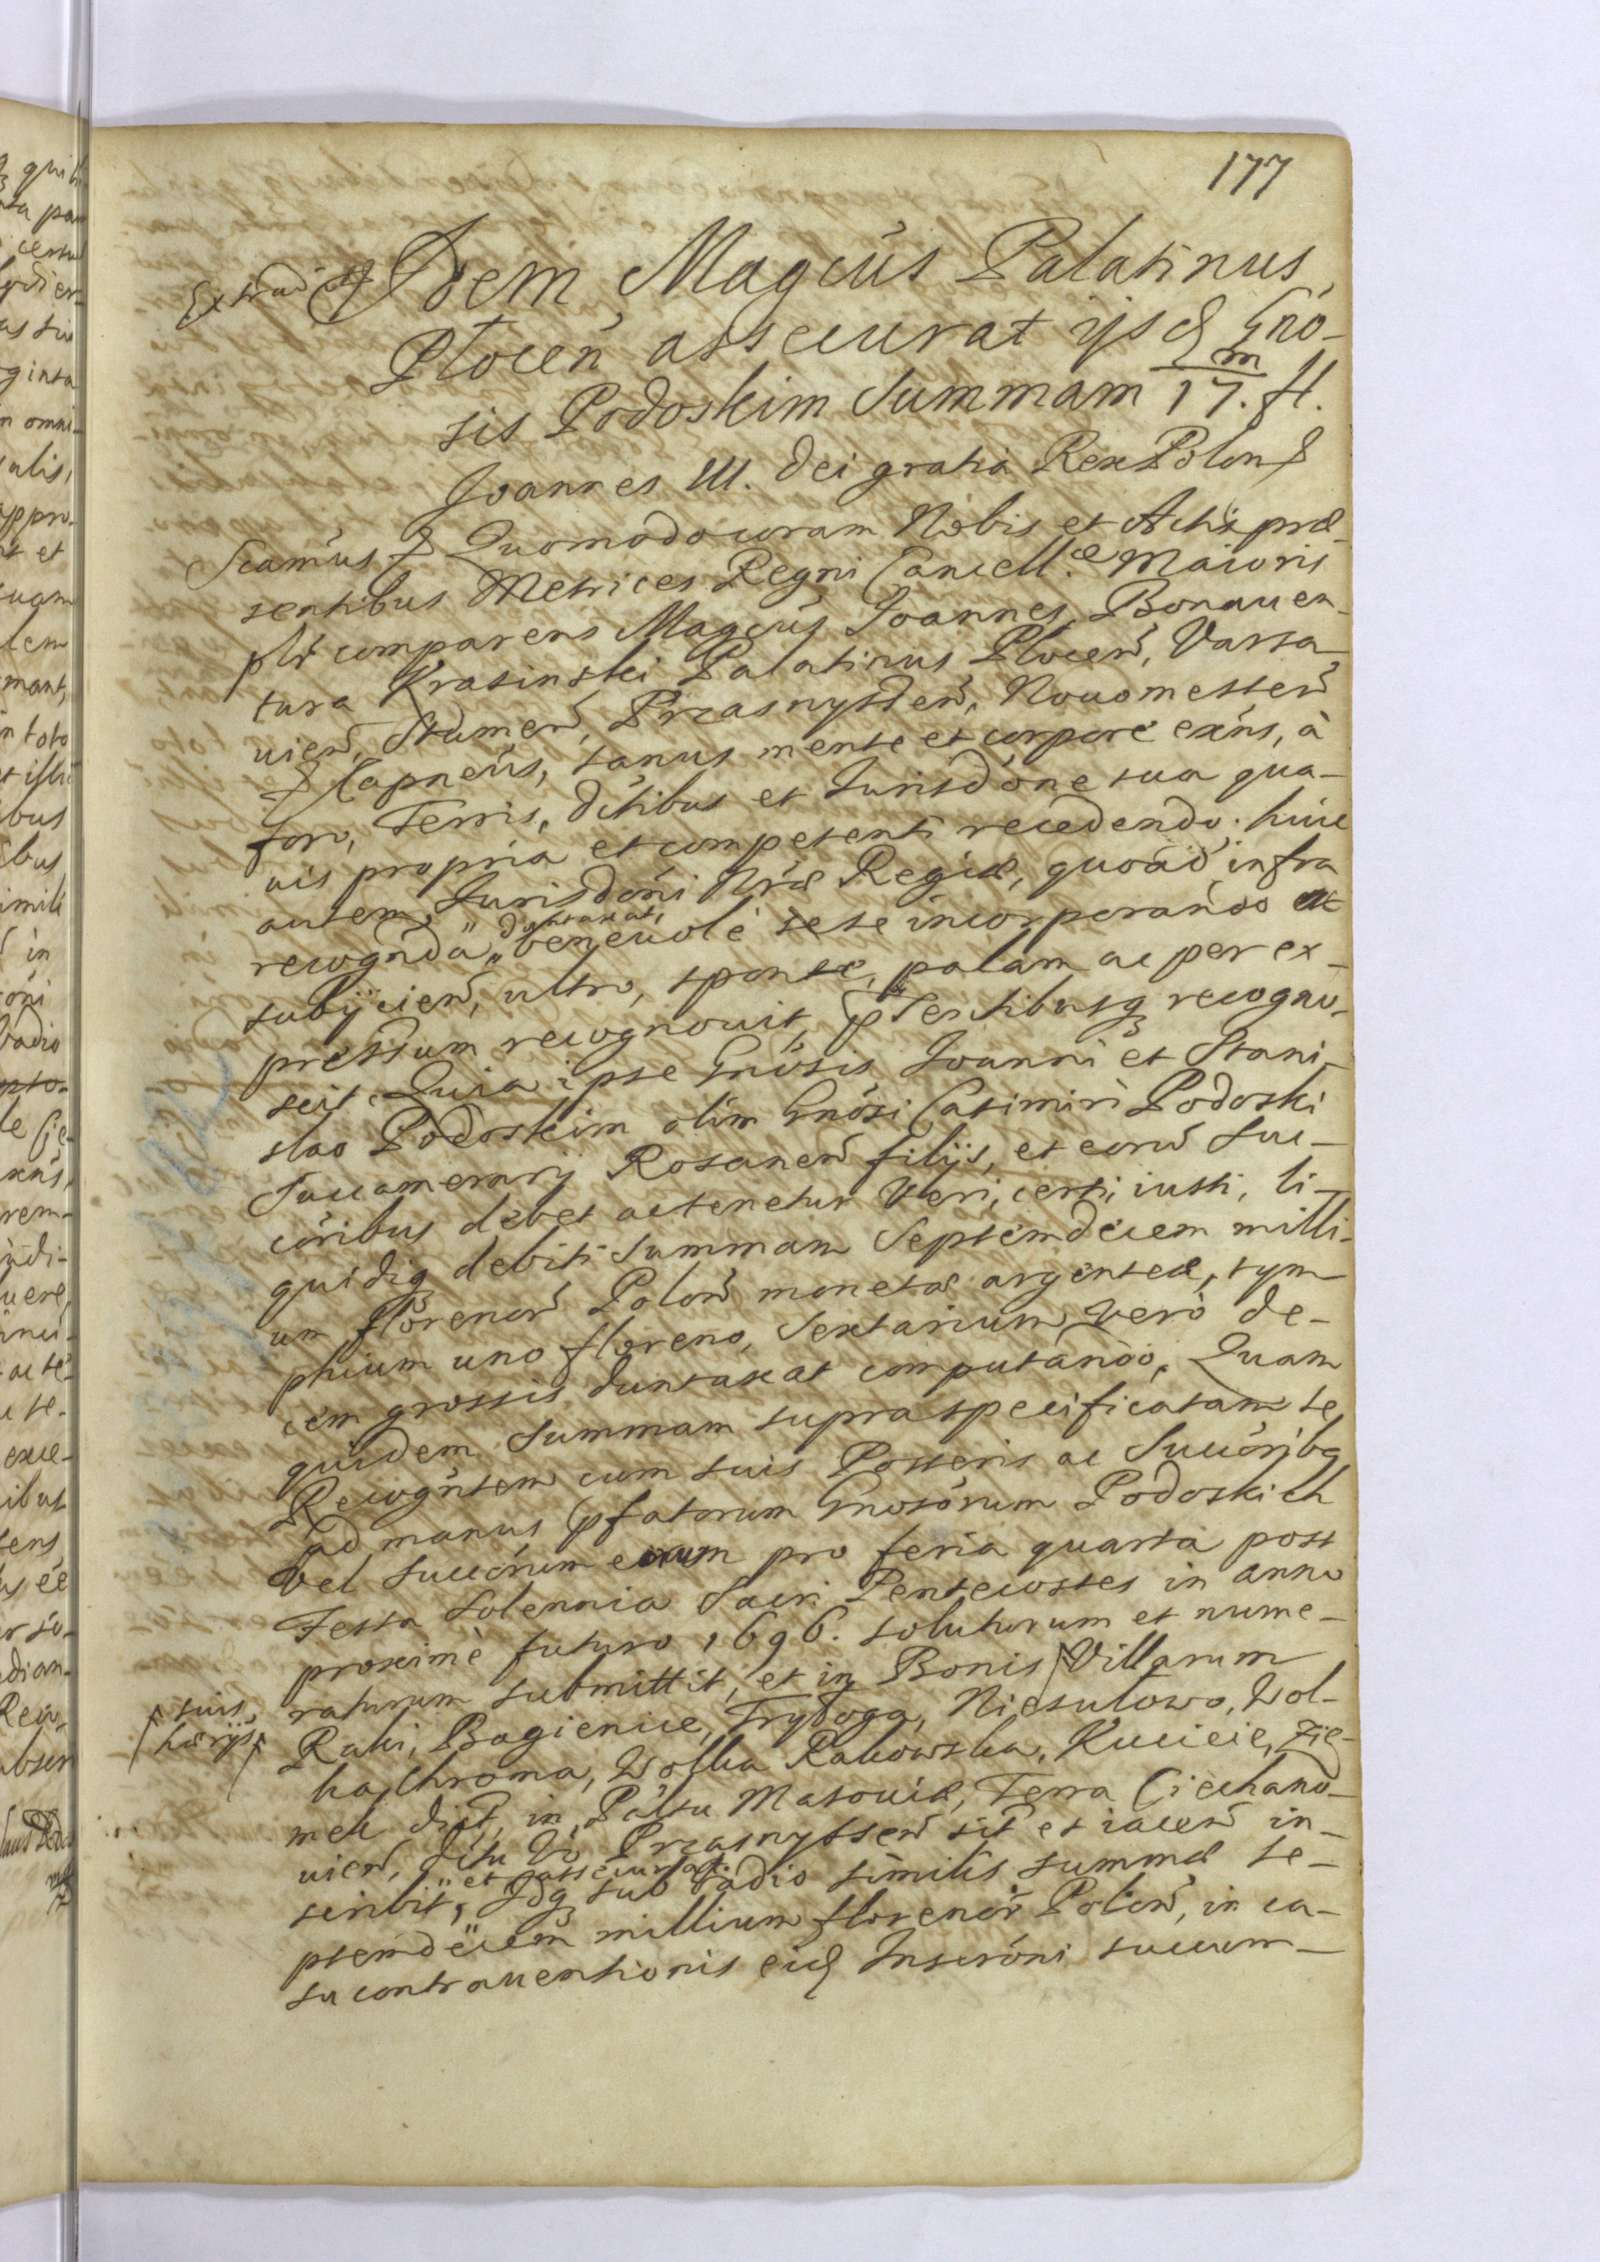 177
Extrad Idem Magcús Palatinus
Plocen̄ assecurat ijsd Gno-
sis Podoskim Summam 17.m fl.
Joannes III. Dei gratia Rex Polon
Scamús Quomodo coram Nobis et Actis præ-
sentibus Metrices Regni Cancell.æ Maioris
plr comparens Magcús Joannes Bonauen-
tura Krasinski Palatinus Plocen̄, Varsa-
uien̄, Stamen̄, Przasnysden̄, Nouomesten̄
Capneús, sanus mente et corpore exńs, à
foro, Terris, Dítibus et Jurisdóne sua qua-
uis propria et competenti recedendo. huic
autem Jurisdóni Nrǽ Regiæ, quoad infra
recognda duntaxat, beneuole sese incorporando et
subijcien̄, ultro, sponte, palam ac per ex-
pressum recognouit, pñtibusq recogno-
scit. Quia ipse Gnósis Joanni et Stani-
slao Podoskim olim Gnósi Casimiri Podoski
Succamerarij Rosanen̄ filijs, et eorū suc-
córibus debet ac tenetur veri, certi, iusti, li-
quidiq debiti Summam Septemdecem milli-
um florenor̄ Polon̄ monetæ argenteæ, tym-
phium uno floreno, Sextarium verò de-
cem grossis duntaxat computando. Quam
quidem Summam supraspecificatam se
Recognńtem cum suis Posteris ac Succóribq
ad manus pfatorum Gnosórum Podoskich
vel succórum eorum pro feria quarta post
Festa Solennia Sacri Pentecostes in anno
proximè futuro 1696. soluturum et nume-
raturum submittit, et in Bonis Villarum
suis
hærijs
Raki, Bagienice, Frydoga, Niesulowo, Wol-
ka Chroma, Wolka Rakowska, Kucicie, Zie-
mek dict, in Paltu Masouiæ, Terra Ciechano-
uien̄, Dítu Vo Przasnyssen̄ sit et iacen̄ in-
scribit, et assecurat. Idq sub vadio similis summæ se-
ptemdecem millium florenor̄ Polon̄, in ca-
su contrauentionis eid Inscróni succum-